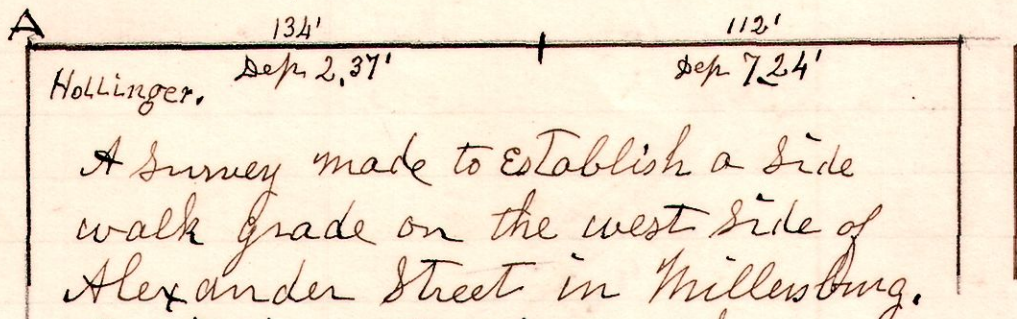 A 134' 112'
Hollinger. Dep 2.37' Dep 7.24'
A Survey made to Establish a Side
walk grade on the west Side of
Alexander Street in Millersburg.